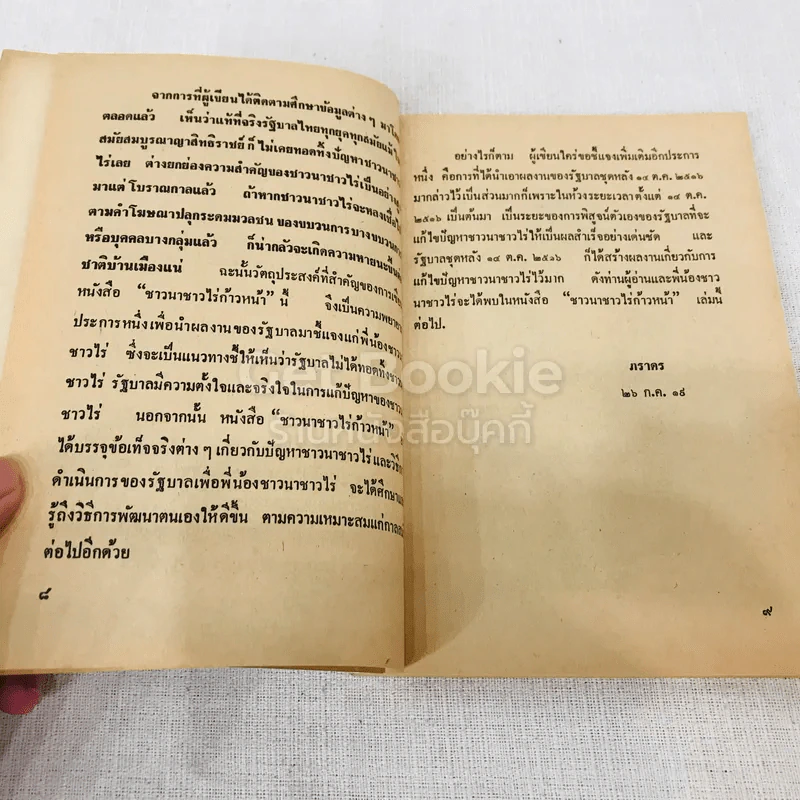 จากการที่ผู้เขียนได้ติดตามศึกษาข้อมูลต่าง ๆ มา
ตลอดแล้ว เห็นว่าแท้ที่จริงรัฐบาลไทยทุกยุคทุกสมัยแม้
สมัยสมบูรณาญาสิทธิราชย์ ก็ไม่เคยทอดทิ้งปัญหาชาวนา
ไร่เลย ต่างยกย่องความสำคัญของชาวนาชาวไร่เป็นอย่าง
มาแต่โบราณกาลแล้ว ถ้าหากชาวนาชาวไร่จะหลงเชื่อ
ตามคำโฆษณาปลุกระดมมวลชน ของขบวนการ บางขบวน
หรือบุคคลบางกลุ่มแล้ว ก็น่ากลัวจะเกิดความหายนะขึ้น
ชาติบ้านเมืองแน่ ฉะนั้นวัตถุประสงค์ที่สำคัญของการ
หนังสือ “ชาวนาชาวไร่ก้าวหน้า” นี้ จึงเป็นความ
ประการหนึ่งเพื่อนำผลงานของรัฐบาลมาชี้แจงแก่พี่น้อง
ชาวไร่ ซึ่งจะเป็นแนวทางชี้ให้เห็นว่ารัฐบาลไม่ได้ทอดทิ้ง
ชาวไร่ รัฐบาลมีความตั้งใจและจริงใจในการแก้ปัญหาของ
ชาวไร่ นอกจากนั้น หนังสือ “ชาวนาชาวไร่ก้าวหน้า”
ได้บรรจุข้อเท็จจริงต่าง ๆ เกี่ยวกับปัญหาชาวนาชาวไร่และ
ดำเนินการของรัฐบาลเพื่อพี่น้องชาวนาชาวไร่ จะได้ศึกษา
รู้ถึงวิธีการพัฒนาตนเองให้ดีขึ้น ตามความเหมาะสมแก่
ต่อไปอีกด้วย
๘
อย่างไรก็ตาม ผู้เขียนใคร่ขอชี้แจงเพิ่มเติมอีกประการ
หนึ่ง คือการที่ได้นำเอาผลงานของรัฐบาลชุดหลัง ๑๔ ต.ค. ๒๕๑๖
มากล่าวไว้เป็นส่วนมากก็เพราะในห้วงระยะเวลาตั้งแต่ ๑๔ ต.ค.
๒๕๑๖ เป็นต้นมา เป็นระยะของการพิสูจน์ตัวเองของรัฐบาลที่จะ
แก้ไขปัญหาชาวนาชาวไร่ให้เป็นผลสำเร็จอย่างเด่นชัด และ
รัฐบาลชุดหลัง ๑๔ ต.ค. ๒๕๑๖ ก็ได้สร้างผลงานเกี่ยวกับการ
แก้ไขปัญหาชาวนาชาวไร่ไว้มาก ดังท่านผู้อ่านและพี่น้องชาว
นาชาวไร่จะได้พบในหนังสือ “ชาวนาชาวไร่ก้าวหน้า” เล่มนี้
ต่อไป.
ภราดร
๒๖ ก.ค. ๑๘
๙
Get Bookie
ร้านหนังสือบุ๊คกี้